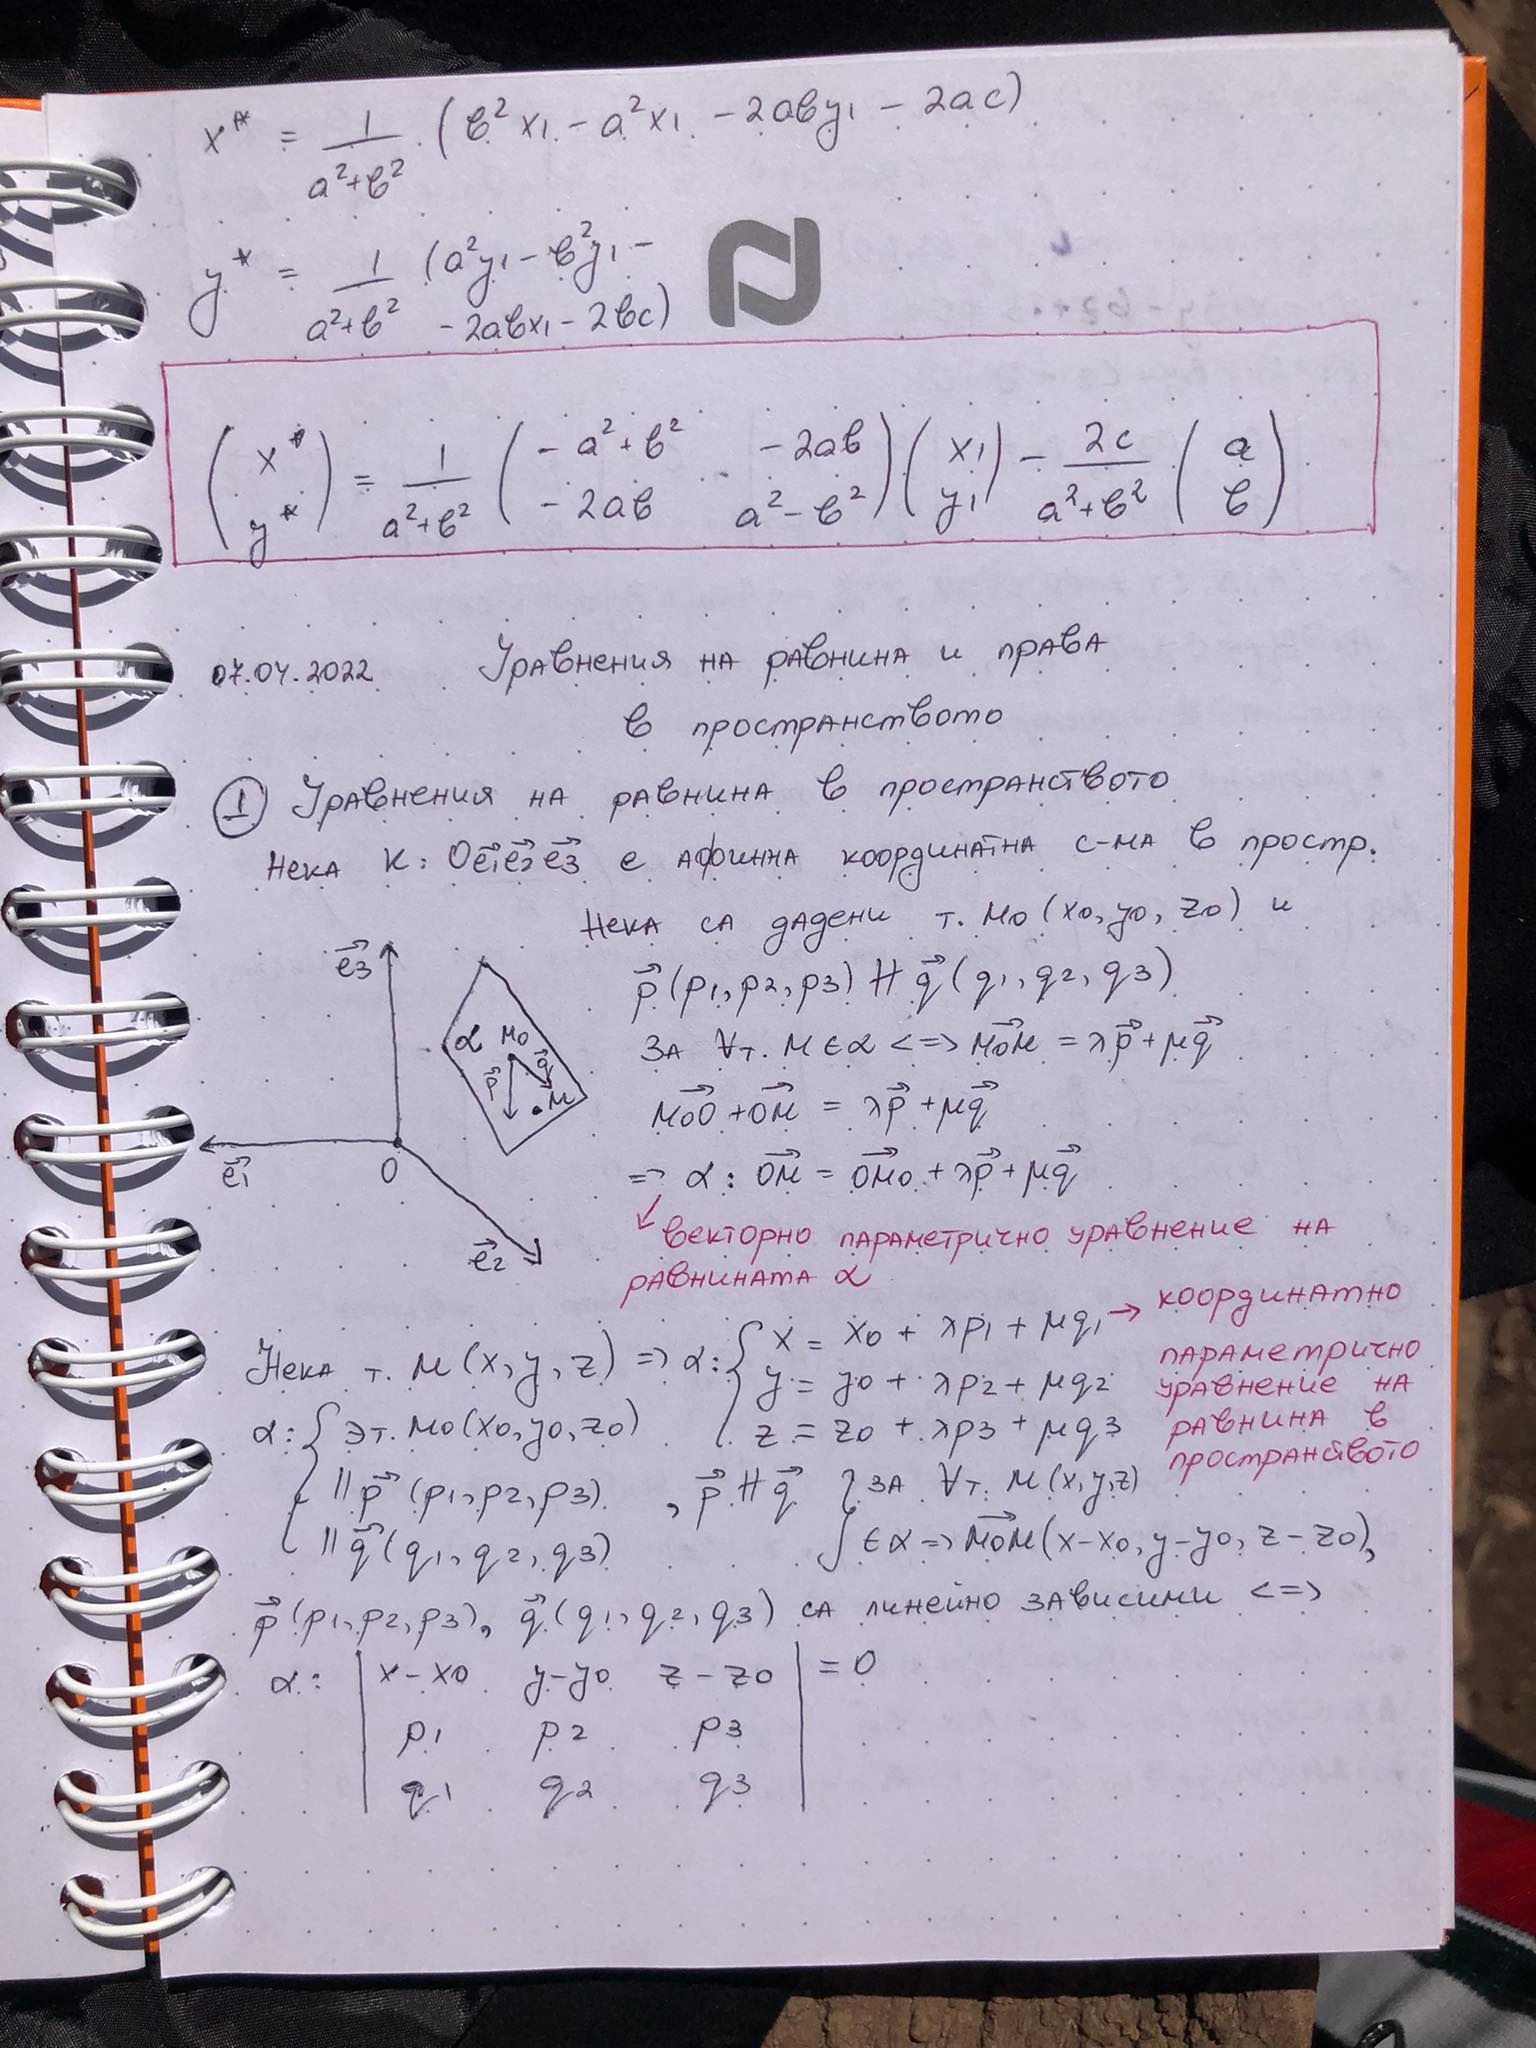 x* = 1/(a²+b²) (b²x₁ - a²x₁ - 2aby₁ - 2ac)
y* = 1/(a²+b²) (a²y₁ - b²y₁ -
- 2abx₁ - 2bc)
(x* y*) = 1/(a²+b²) (-a²+b² -2ab -2ab a²-b²) (x₁ y₁) - 2c/(a²+b²) (a b)
07.04.2022 Уравнения на равнина и права
в пространството
① Уравнения на равнина в пространството
Нека K: Oe₁⃗e₂⃗e₃⃗ е афинна координатна с-ма в простр.
Нека са дадени т. M₀(x₀, y₀, z₀) и
p⃗(p₁, p₂, p₃) ∦ q⃗(q₁, q₂, q₃)
За ∀ т. M ∈ α <=> M₀M⃗ = λp⃗ + μq⃗
M₀O⃗ + OM⃗ = λp⃗ + μq⃗
=> α: OM⃗ = OM₀⃗ + λp⃗ + μq⃗
векторно параметрично уравнение на
равнината α
e₃⃗
α M₀
p⃗ q⃗
M
e₁⃗ O
e₂⃗
Нека т. M(x, y, z) => α: { x = x₀ + λp₁ + μq₁ → координатно
y = y₀ + λp₂ + μq₂
z = z₀ + λp₃ + μq₃
параметрично
уравнение на
равнина в
пространството
α: { ∋ т. M₀(x₀, y₀, z₀)
|| p⃗ (p₁, p₂, p₃) , p⃗ ∦ q⃗ } за ∀ т. M(x, y, z)
|| q⃗ (q₁, q₂, q₃) ∈ α => M₀M⃗(x-x₀, y-y₀, z-z₀),
p⃗(p₁, p₂, p₃), q⃗(q₁, q₂, q₃) са линейно зависими <=>
α: | x-x₀ y-y₀ z-z₀ | = 0
p₁ p₂ p₃
q₁ q₂ q₃